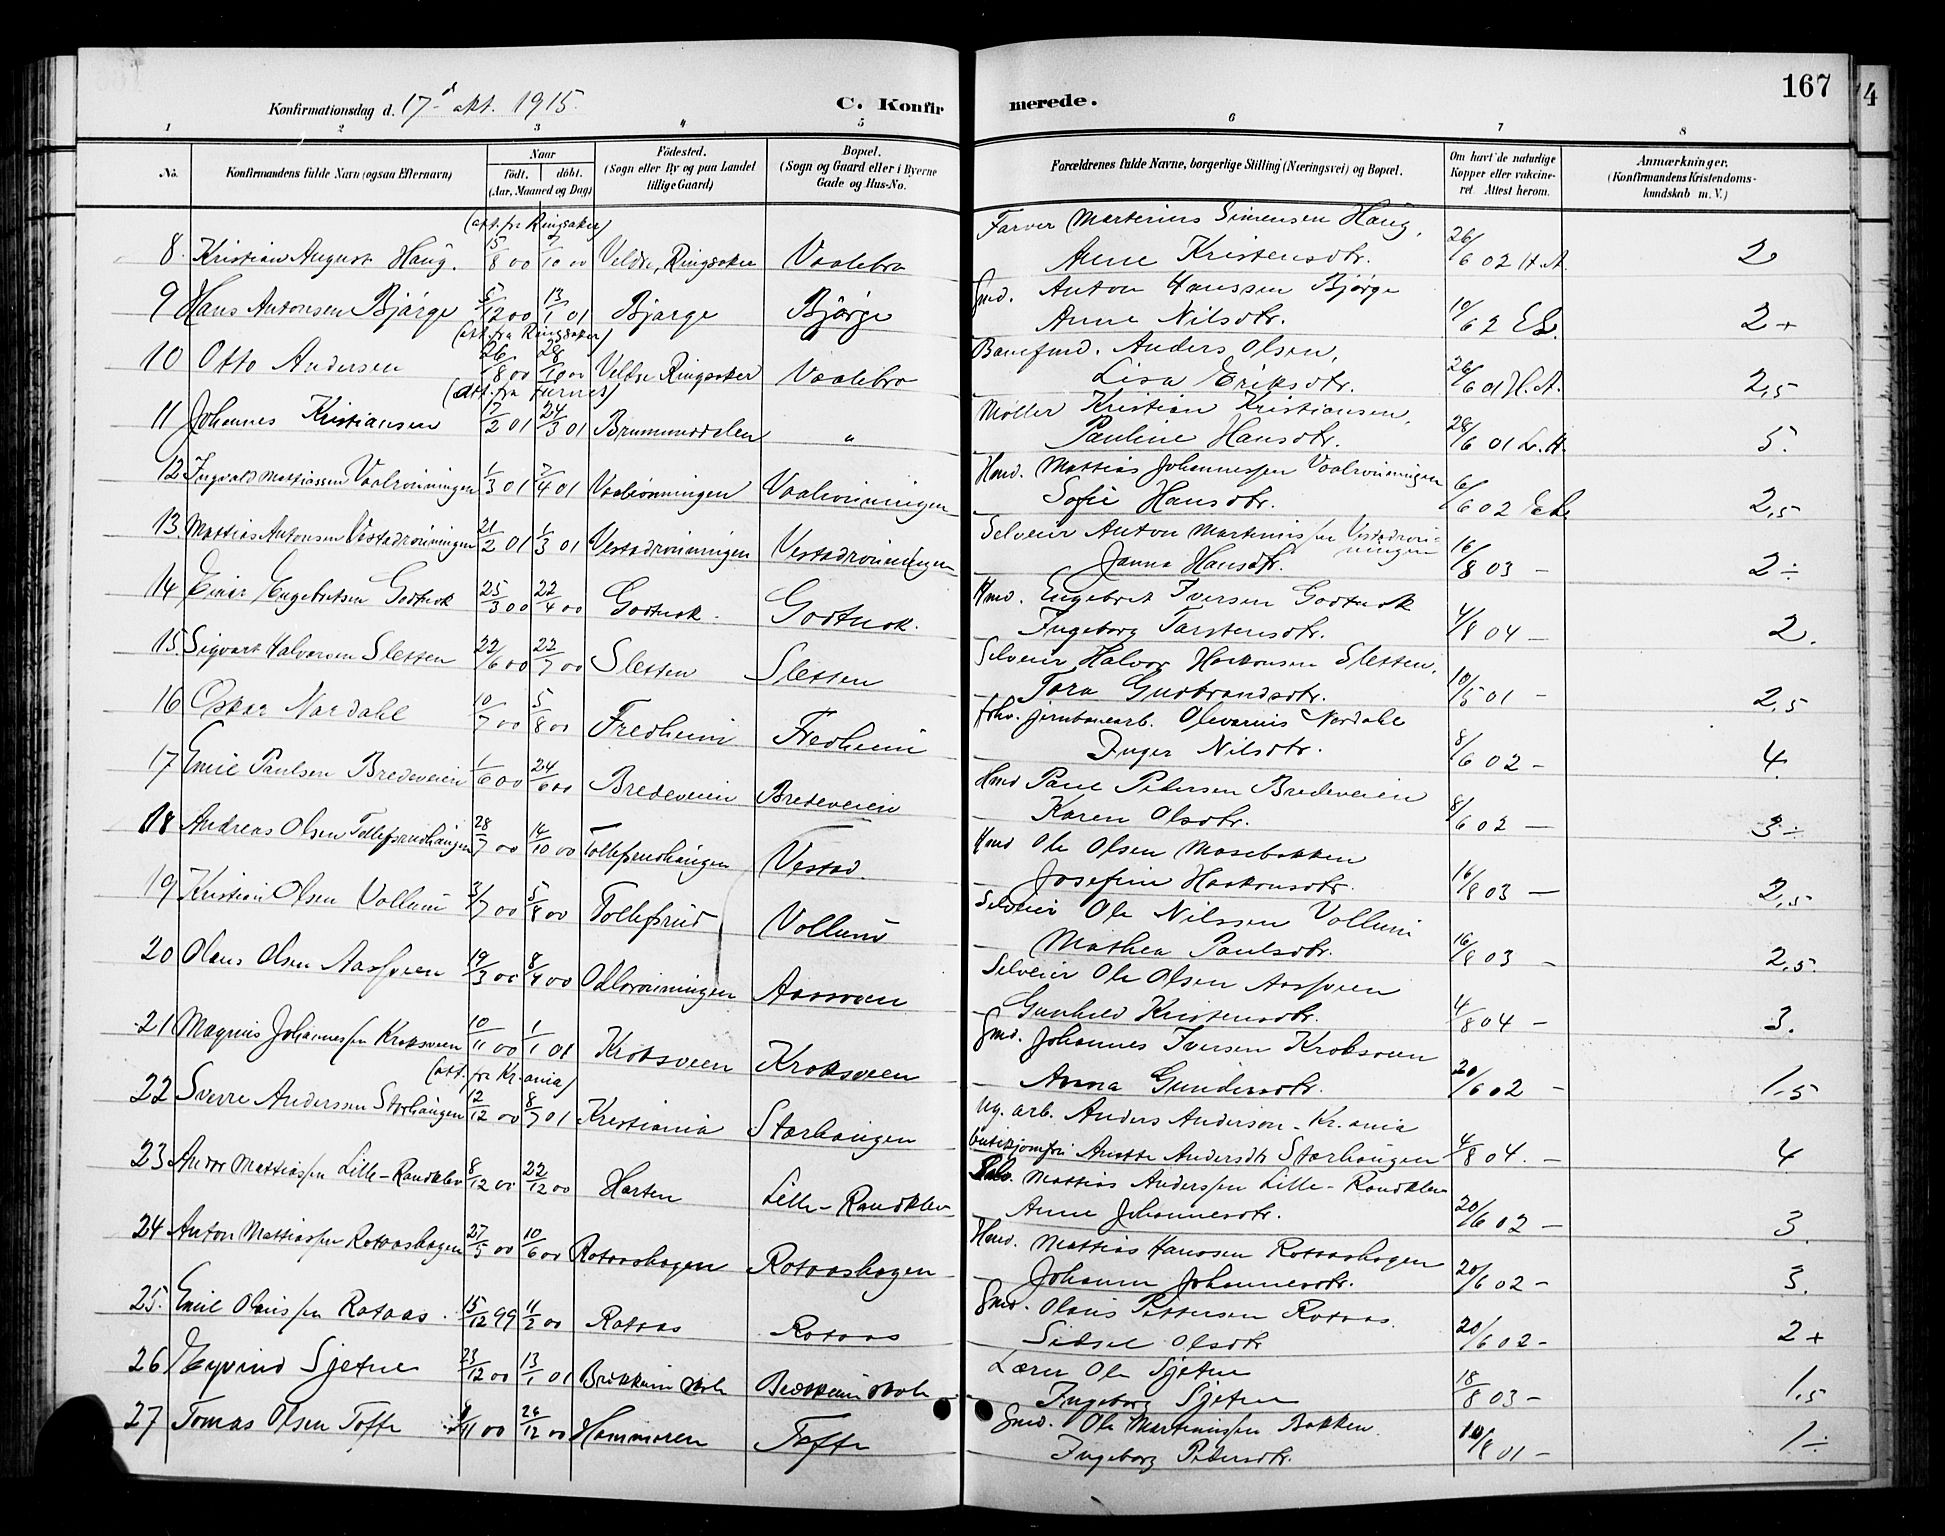 167
Konfirmationsdag d. 17de okt. 1915.
C. Konfirmerede.
1 2 3 4 5 6 7 8
No. Konfirmandens fulde Navn (ogsaa Efternavn) Naar født. døbt. (Aar, Maaned og Dag) Födested. (Sogn eller By og paa Landet tillige Gaard) Bopæl. (Sogn og Gaard eller i Byerne Gade og Hus-No. Forældrenes fulde Navne, borgerlige Stilling (Næringsvei) og Bopæl. Om havt de naturlige Kopper eller vakcineret Attest herom. Anmærkninger. (Konfirmandens Kristendomskundskab m. V.)
(att. fra Ringsaker) Farver Martinius Simensen Haug,
8. Kristian August Haug. 15/8 00 7/10 00 Veldre, Ringsaker Vaalebro Anne Kristensdtr. 26/6 02 H.A. 2
Gmd. Anton Hanssen Bjørge
9 Hans Antonsen Bjørge 5/12 00 13/1 01 Bjørge Bjørge Anne Nilsdtr. 10/6 2 Eb. 2+
(att. fra Ringsaker) Banefmd. Anders Olsen,
10 Otto Andersen 26/8 00 28/10 00 Veldre Ringsaker Vaalebro Lisa Eriksdtr. 26/6 01 H.A. 2,5
(att. fra Furnes) Møller Kristian Kristiansen,
11 Johannes Kristiansen 17/2 01 24/3 01 Brummunddalen " Pauline Hansdtr. 28/6 01 L.H. 5.
Hmd. Mattias Johannessen Vaalrønningen
12 Ingvald Mattiassen Vaalrønningen 1/3 01 7/4 01 Vaalrønningen Vaalrønningen Sofie Hansdtr. 6/6 02 Eb 2,5
Selveier Anton Martinussen Vestadrønningen
13. Mattias Antonsen Vestadrønningen 21/2 01 1/3 01 Vestadrønningen Vestadrønningen Janna Hansdtr. 16/8 03 - 2÷
Hmd. Engebret Iversen Godtnok
14 Einar Engebretsen Godtnok 25/3 00 22/4 00 Godtnok. Godtnok. Ingeborg Tarstensdtr. 4/8 04 - 2.
Selveier Halvor Haakonsen Sletten,
15. Sigvart Halvorsen Sletten 22/6 00 22/7 00 Sletten Sletten Tora Gudbrandsdtr. 10/5 01 - 2,5
fhv. jernbanearb. Olevarius Nordahl
16 Oskar Nordahl 10/7 00 5/8 00 Fredheim Fredheim Inger Nilsdtr. 8/6 02 - 4.
Hmd Paul Petersen Bredeveien
17 Emil Paulsen Bredeveien 1/6 00 24/6 00 Bredeveien Bredeveien Karen Olsdtr. 8/6 02 - 3÷
Hmd Ole Olsen Mosebakken
18 Andreas Olsen Tollefsrudhaugen 28/7 00 14/10 00 Tollefsrudhaugen Vestad. Josefine Haakonsdtr. 16/8 03 - 2,5
Selveier Ole Nilssen Vollum
19 Kristian Olsen Vollum 3/7 00 5/8 00 Tollefsrud Vollum Mathea Paulsdtr. 16/8 03 - 2,5.
Selveier Ole Olsen Aassveen
20 Olaus Olsen Aassveen 19/3 00 8/4 00 Odlorønningen Aassveen Gunhild Kristensdtr. 4/8 04 - 3.
Gmd. Johannes Iversen Kroksveen
21 Magnus Johannessen Kroksveen 10/11 00 1/1 01 Kroksveen Kroksveen Anna Gundersdtr. 20/6 02 - 1.5
(att. fra Kr.ania) Ug. arb. Anders Anderson - Kr.ania
22 Sverre Anderssen Storhaugen 12/12 00 8/7 01 Kristiania Storhaugen butikjomfru Anette Andersdtr Storhaugen 4/8 04. - 4
Selv. Mattias Anderssen Lille-Randklev
23 Andor Mattiassen Lille-Randklev 8/12 00 22/12 00 Horten Lille-Randklev Anne Johannesdtr. 20/6 02 - 3.
Hmd. Mattias Hanssen Rotaashagen
24 Anton Mattiassen Rotaashagen 27/5 00 10/6 00 Rotaashagen Rotaashagen Johanne Johannesdtr. 20/6 02 - 3.
Gmd. Olaus Pettersen Rotaas.
25. Emil Olaussen Rotaas. 15/12 99 11/2 00 Rotaas Rotaas Sidsel Olsdtr 20/6 02 - 2+
Lærer Ole Sjetne
26 Eyvind Sjetne 23/12 00 13/1 01 Brækkum skole Brækkum skole Ingeborg Sjetne 18/8 03 - 1,5
Gmd. Ole Martinussen Bakken
27 Tomas Olsen Tofte /11 00 26/12 00 Hammeren Tofte Ingeborg Petersdtr. 10/8 01 - 1÷